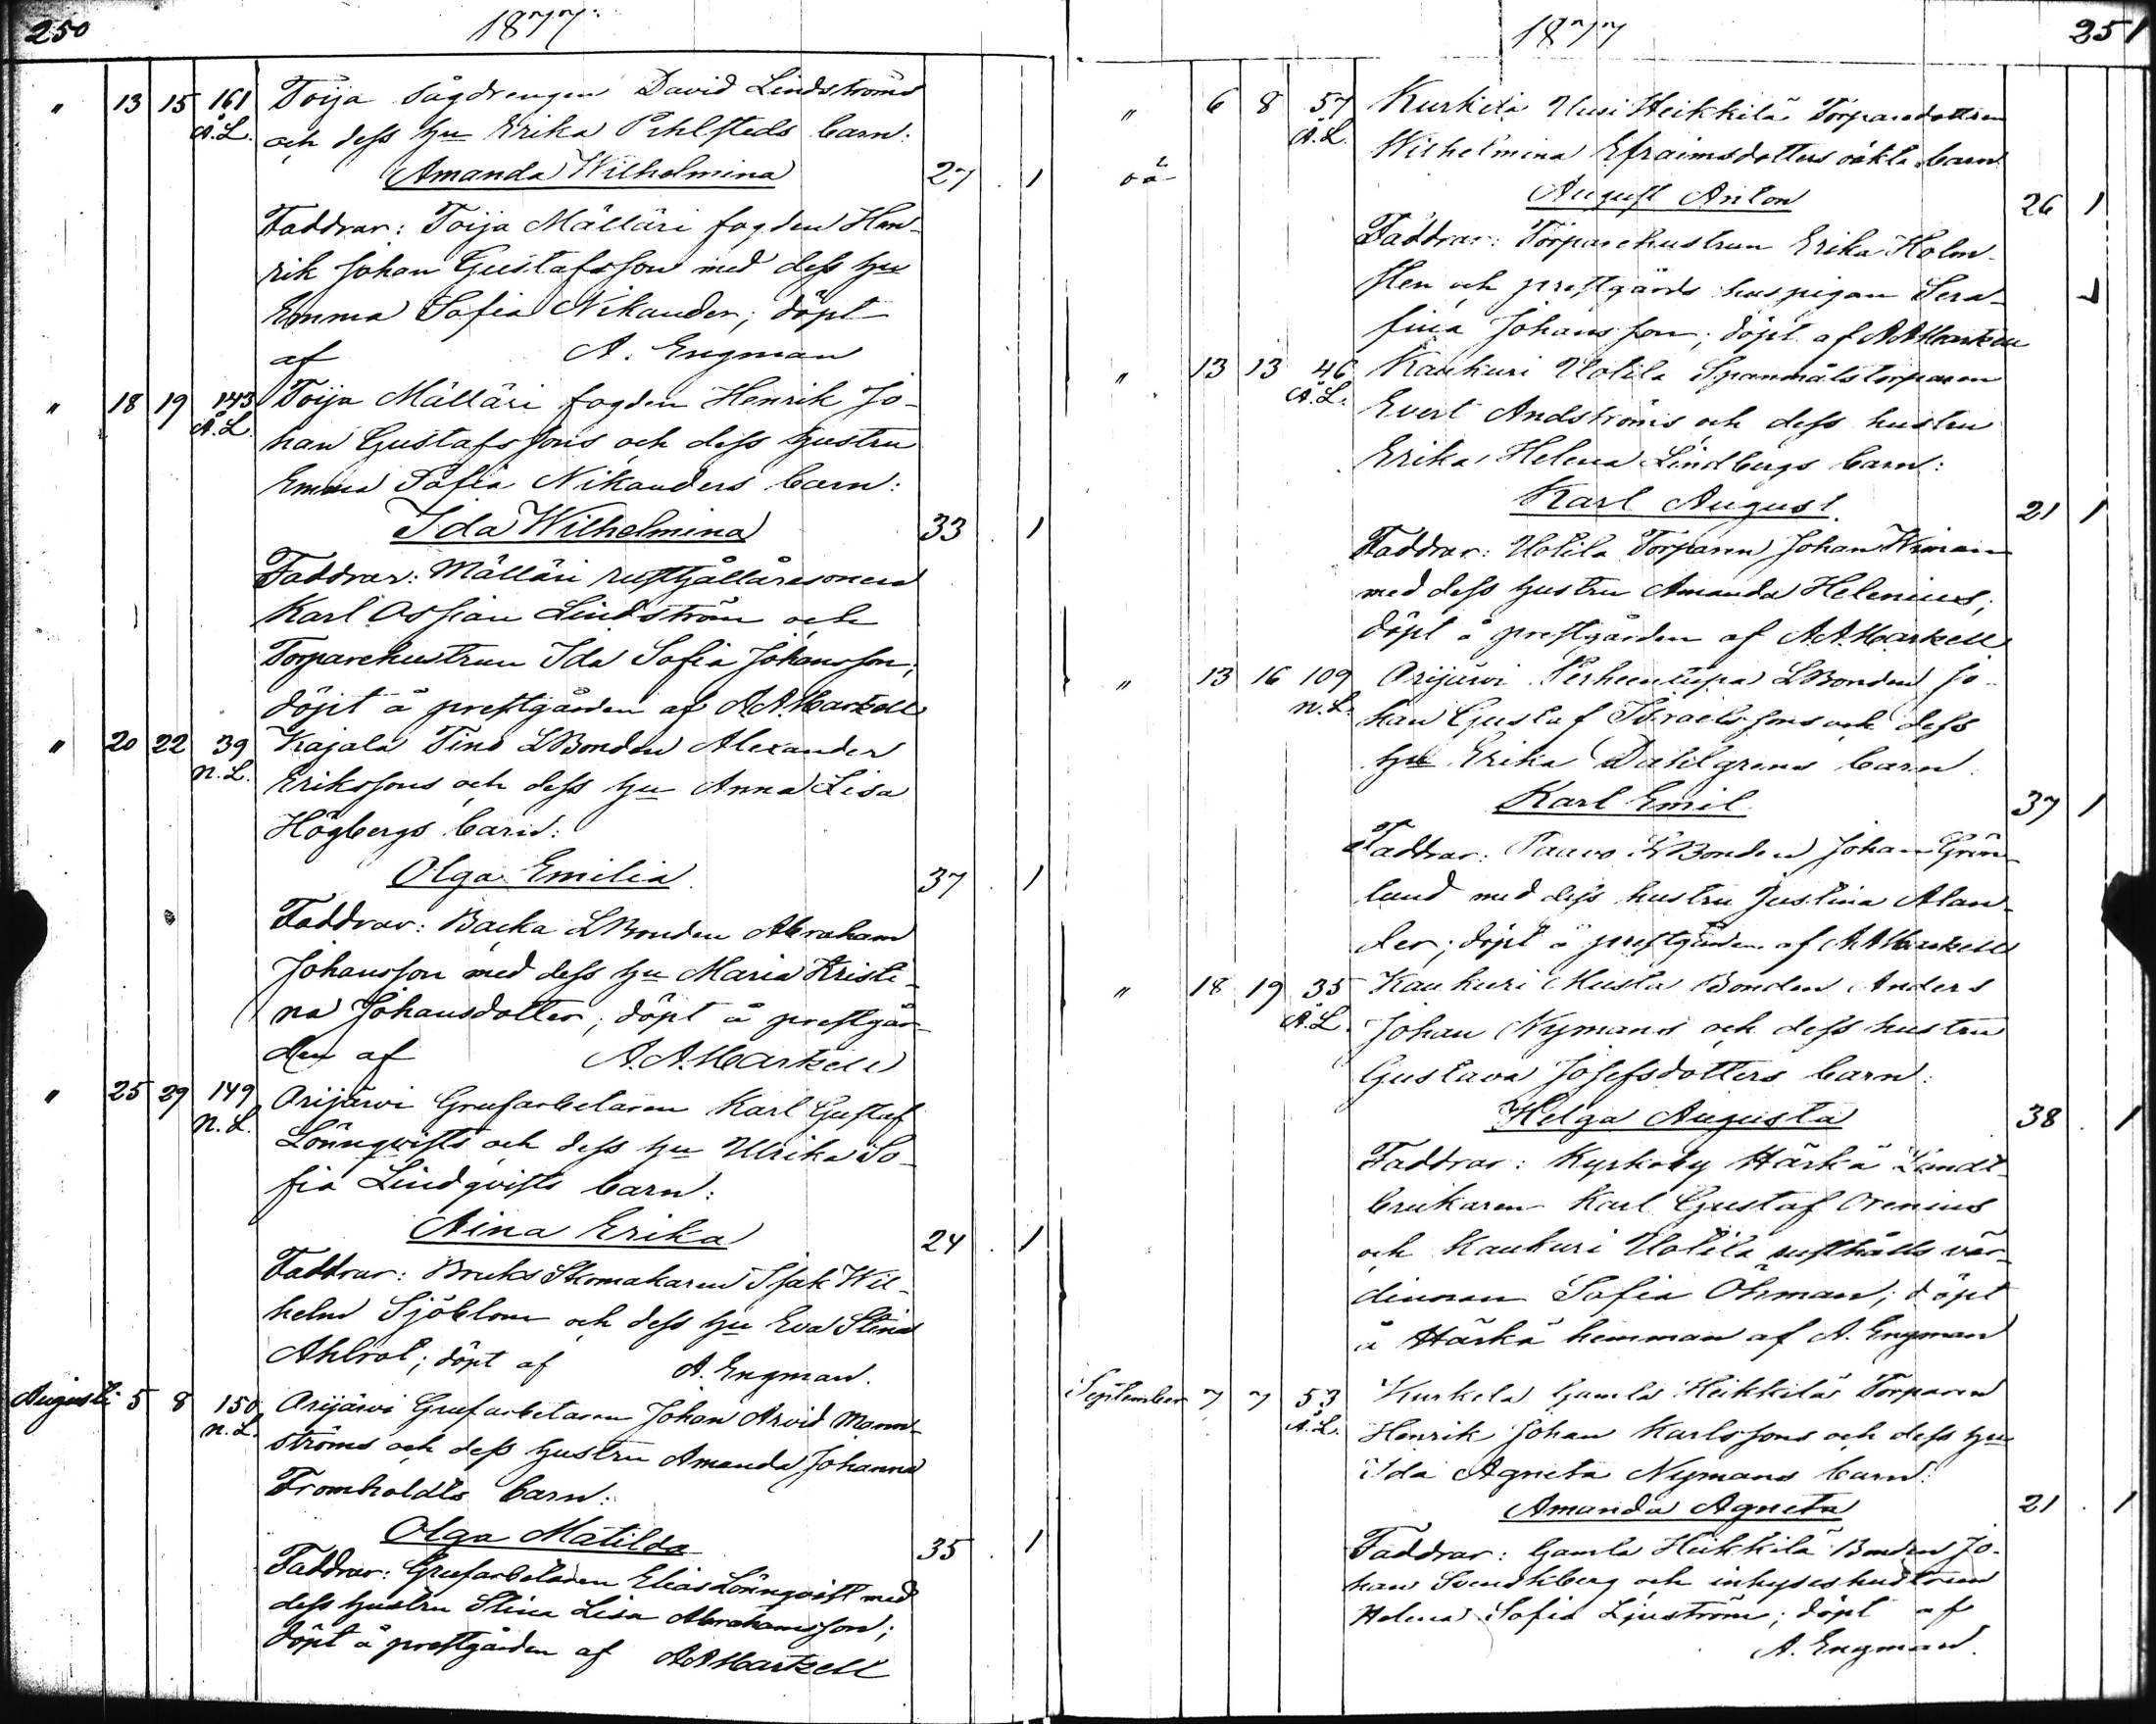 250 1877.
" 13 15 161 Toija Sågdrengen David Lindströms
Å.L. och dess hu Erika Pihlsteds barn:
Amanda Wilhelmina 27 1
Faddrar: Toija Mälläri fogden Hen-
rik Johan Gustafsson med dess hu
Emma Sofia Nikander; döpt
af A. Engman
" 18 19 143 Toija Mälläri fogden Henrik Jo-
Å.L. han Gustafssons och dess hustru
Emma Sofia Nikanders barn:
Ida Wilhelmina 33 1
Faddrar: Mälläri rusthållaresonen
Karl Ossian Lindström och
Torparehustrun Ida Sofia Johansson;
döpt å prestgården af A.A. Markell
" 20 22 39 Kajala Tino LBonden Alexander
n.L. Erikssons och dess hu Anna Lisa
Högbergs barn:
Olga Emilia 37 1
Faddrar: Backa LBonden Abraham
Johansson med dess hu Maria Kristi-
na Johansdotter; döpt å prestgår-
den af A.A. Markell
" 25 29 149 Orijärvi Grufarbetaren Karl Gustaf
n.L. Lönnqvists och dess hu Ulrika So-
fia Lindqvists barn:
Aina Erika 24 1
Faddrar: Bruks Skomakaren Isak Wil-
helm Sjöblom och dess hu Eva Stina
Ahlrot; döpt af A. Engman.
Augusti 5 8 150 Orijärvi Grufarbetaren Johan Arvid Monn-
n.L. ströms och dess hustru Amanda Johanna
Fromholdts barn:
Olga Matilda 35 1
Faddrar: Grufarbetaren Elias Lönnqvist med
dess hustru Stina Lisa Abrahamsson;
döpt å prestgården af A.A. Markell
1877 251
" 6 8 57 Kurkela Uusi Heikkilä Torparedottren
Å.L. Wilhelmina Efraimsdotters oäkta barn
oä August Anton 26 1
Faddrar: Torparehustrun Erika Holm-
sten och prestgårds huspigan Sera-
fina Johansson; döpt af A.A. Markell
" 13 13 46 Kaukuri Uotila Spanmålstorparen
Å.L. Evert Andströms och dess hustru
Erika Helena Lindbergs barn:
Karl August 21 1
Faddrar: Uotila Torparen Johan Wiman
med dess hustru Amanda Helenius;
döpt å prestgården af A.A. Markell
" 13 16 109 Orijärvi Perheentupa LBonden Jo-
n.L. han Gustaf Israelssons och dess
hu Erika Dahlgrens barn
Karl Emil 37 1
Faddrar: Paavo LBonden Johan Grön-
lund med dess hustru Justina Alan-
der; döpt å prestgården af A.A. Markell
" 18 19 35 Kaukuri Musta Bonden Anders
Å.L. Johan Nymans och dess hustru
Gustava Josefsdotters barn:
Helga Augusta 38 1
Faddrar: Kyrkoby Härkä Landt-
brukaren Karl Gustaf Orenius
och Kaukuri Uotila rusthålls vär-
dinnan Sofia Öhman; döpt
å Härkä hemman af A. Engman
September 7 7 53 Kurkela Gamla Heikkilä Torparen
Å.L. Henrik Johan Karlssons och dess hu
Ida Agneta Nymans barn:
Amanda Agneta 21 1
Faddrar: Gamla Heikkilä Bonden Jo-
han Svendkberg och inhyseshustrun
Helena Sofia Ljuström; döpt af
A. Engman.